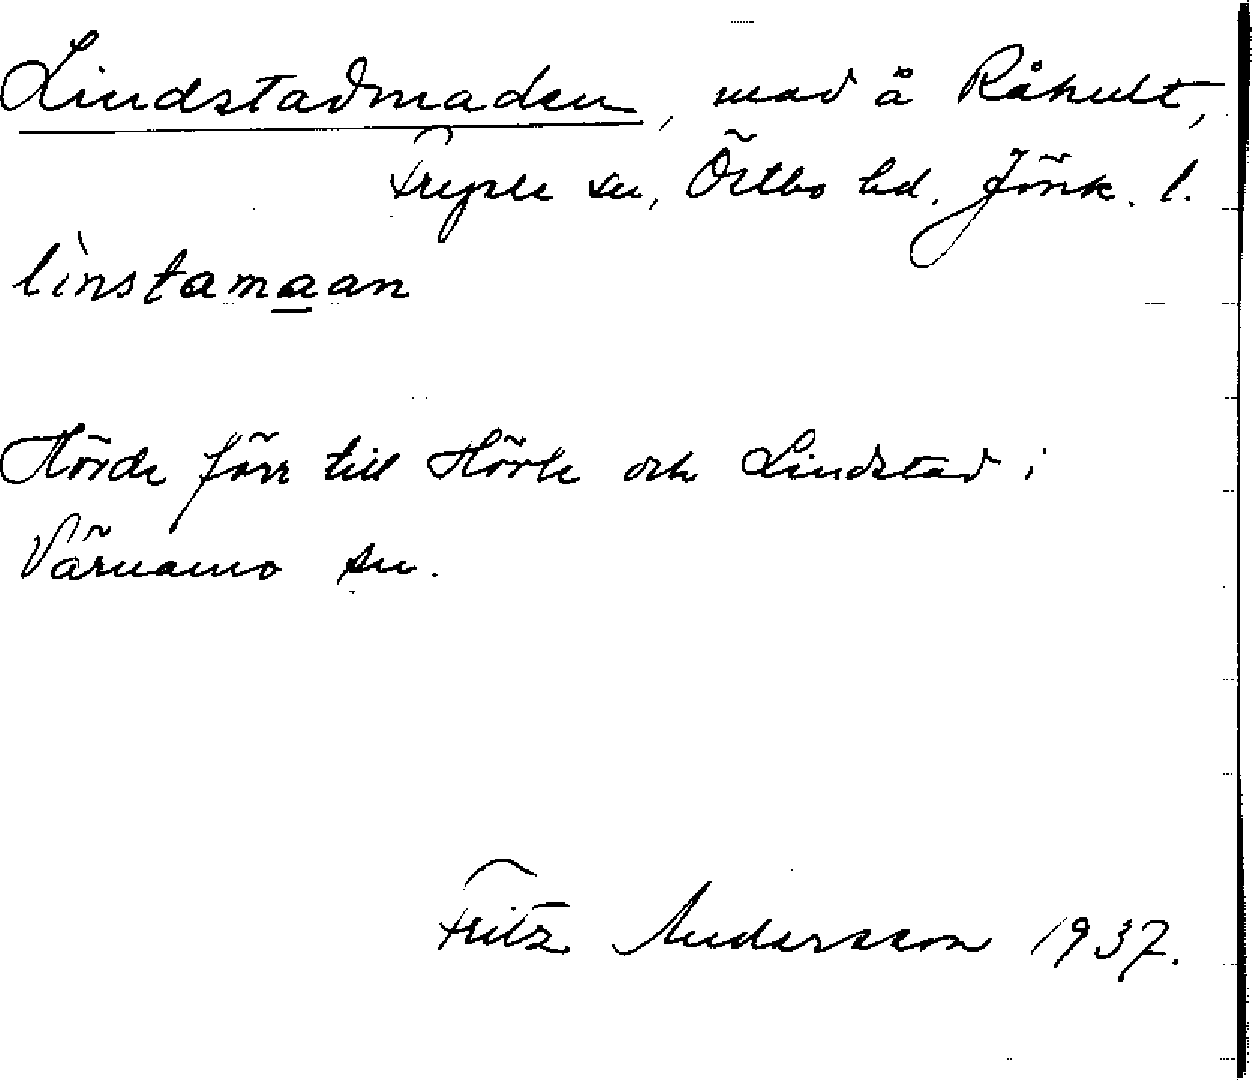 Lindstadmaden, mad å Råhult,
Fryele sn, Östbo hd. Jönk. l.
lìnstamaan
Hörde förr till Hörle och Lindstad i
Värnamo sn.
Fritz Andersson 1937.